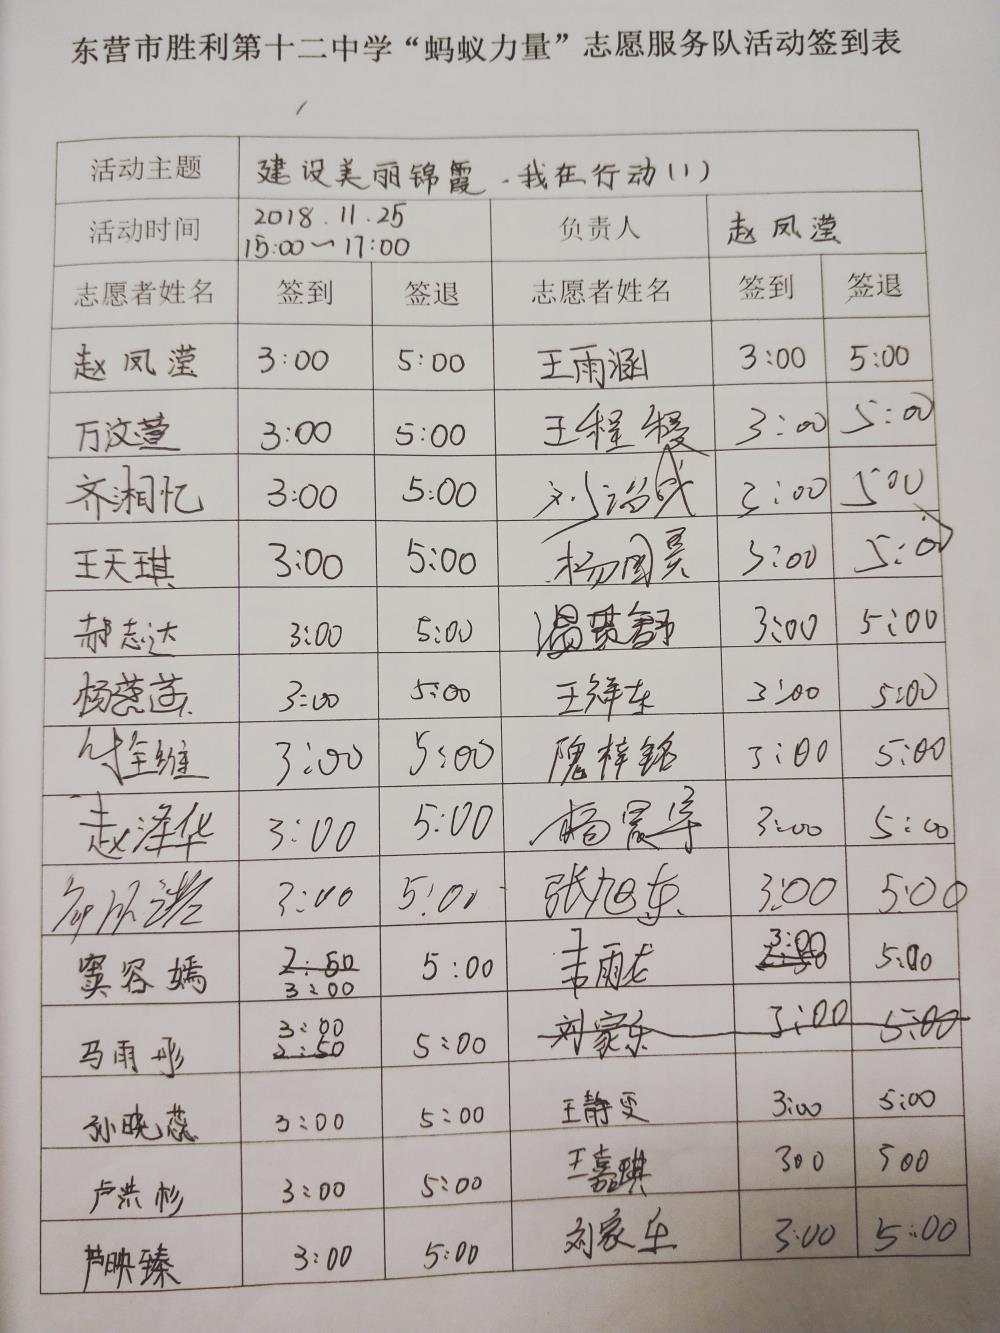 东营市胜利第十二中学“蚂蚁力量”志愿服务队活动签到表
活动主题 建设美丽锦霞.我在行动(1)
活动时间 2018.11.25 15:00～17:00 负责人 赵凤滢
志愿者姓名 签到 签退 志愿者姓名 签到 签退
赵凤滢 3:00 5:00 王雨涵 3:00 5:00
万汶萱 3:00 5:00 王程 3:00 5:00
齐湘忆 3:00 5:00 刘 3:00 5:00
王天琪 3:00 5:00 杨国昊 3:00 5:00
郝志达 3:00 5:00 温 舒 3:00 5:00
杨 3:00 5:00 王祥东 3:00 5:00
付 3:00 5:00 隗梓铭 3:00 5:00
赵泽华 3:00 5:00 杨宸宇 3:00 5:00
3:00 5:00 张旭东 3:00 5:00
窦容嫣 2:50 3:00 5:00 雨 3:00 5:00
马雨彤 3:00 2:50 5:00 刘家乐 3:00 5:00
孙晓蕊 3:00 5:00 王静雯 3:00 5:00
卢洪杉 3:00 5:00 王嘉琪 300 500
芦映臻 3:00 5:00 刘家乐 3:00 5:00